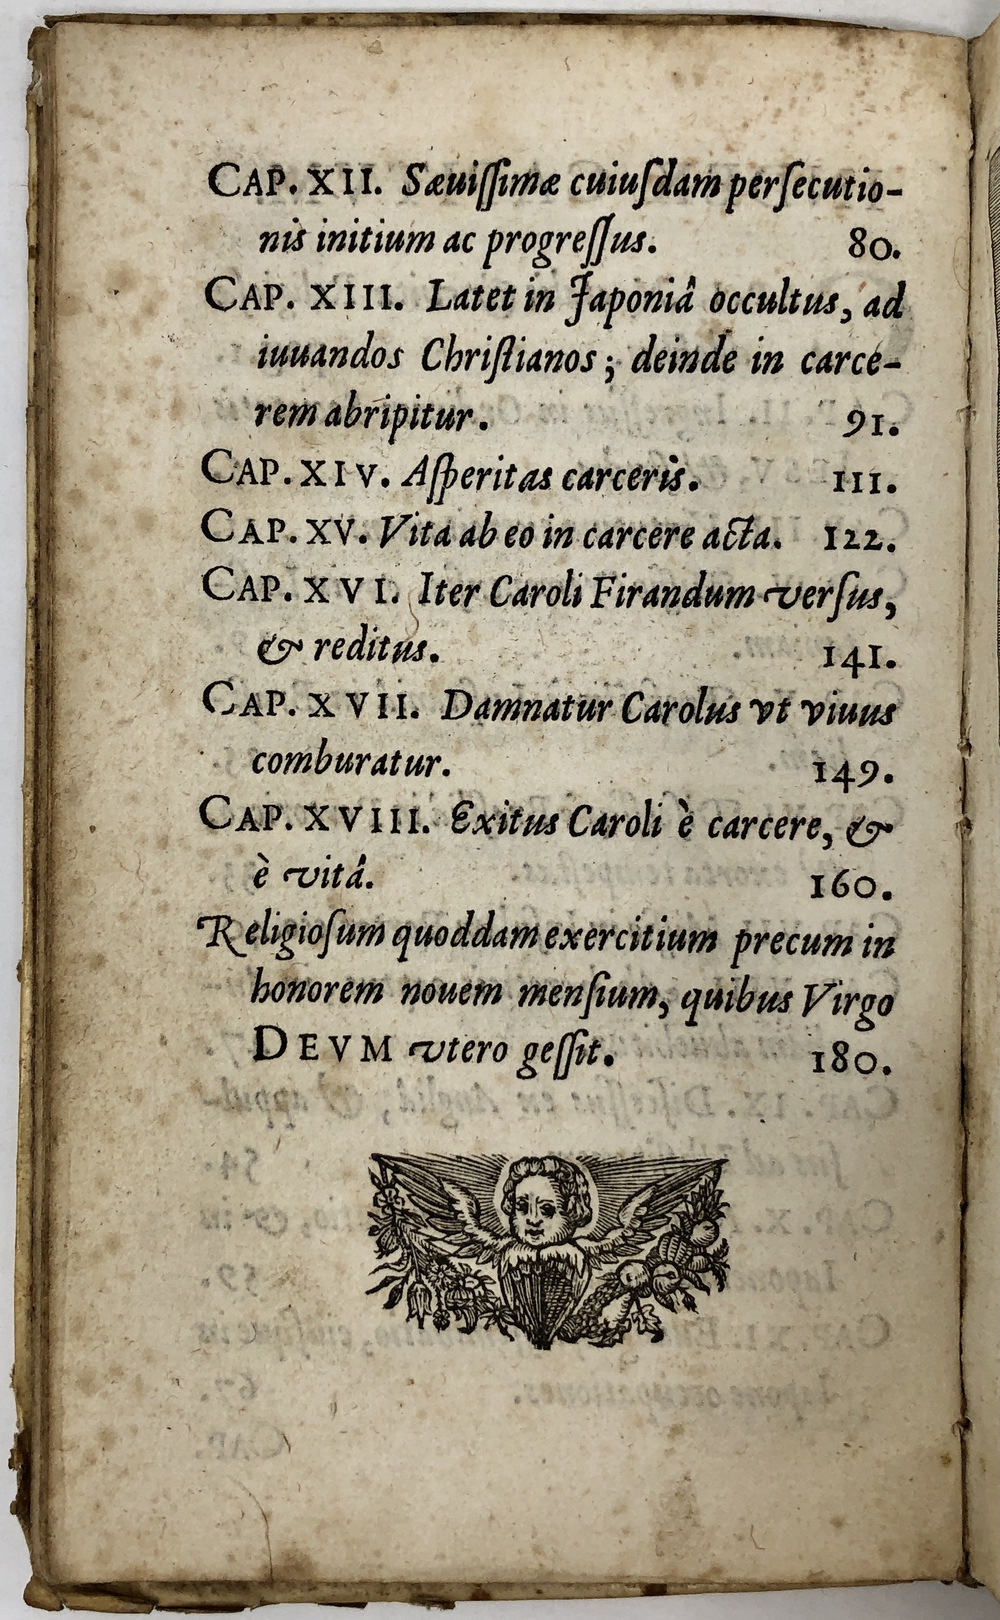 CAP. XII. Sæuiſſimæ cuiuſdam perſecutio-
nis initium ac progreſſus. 80.
CAP. XIII. Latet in Japoniâ occultus, ad
iuuandos Chriſtianos; deinde in carce-
rem abripitur. 91.
CAP. XIV. Aſperitas carceris. 111.
CAP. XV. Vita ab eo in carcere acta. 122.
CAP. XVI. Iter Caroli Firandum verſus,
& reditus. 141.
CAP. XVII. Damnatur Carolus vt viuus
comburatur. 149.
CAP. XVIII. Exitus Caroli è carcere, &
è vitâ. 160.
Religioſum quoddam exercitium precum in
honorem nouem menſium, quibus Virgo
DEVM vtero geſſit. 180.